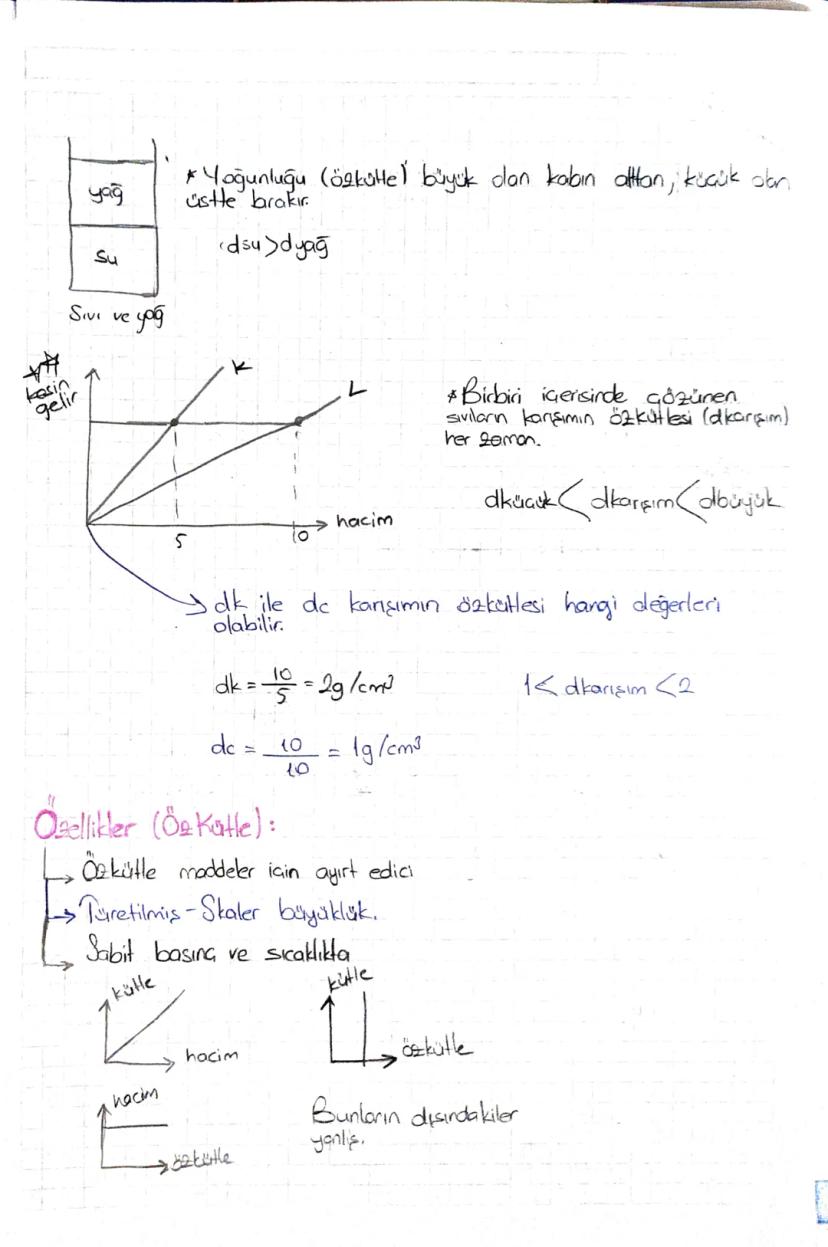 yağ
su
Sıvı ve yağ
* Yoğunluğu (özkütle) büyük olan kabın alttan, küçük olan
üstte bırakır.
dsu > dyağ
kesin
gelir
K
L
5
10
hacim
* Birbiri içerisinde çözünen
sıvıların karışımın özkütlesi (dkarışım)
her zaman.
dküçük < dkarışım < dbüyük
dk ile dc karışımın özkütlesi hangi değerleri
olabilir.
dk = 10/5 = 2g/cm³
1 < dkarışım < 2
dc = 10/10 = 1g/cm³
Özellikler (Özkütle):
Özkütle maddeler için ayırt edici
Türetilmiş - Skaler büyüklük.
Sabit basınç ve sıcaklıkta
kütle
hacim
kütle
özkütle
hacim
özkütle
Bunların dışındakiler
yanlış.